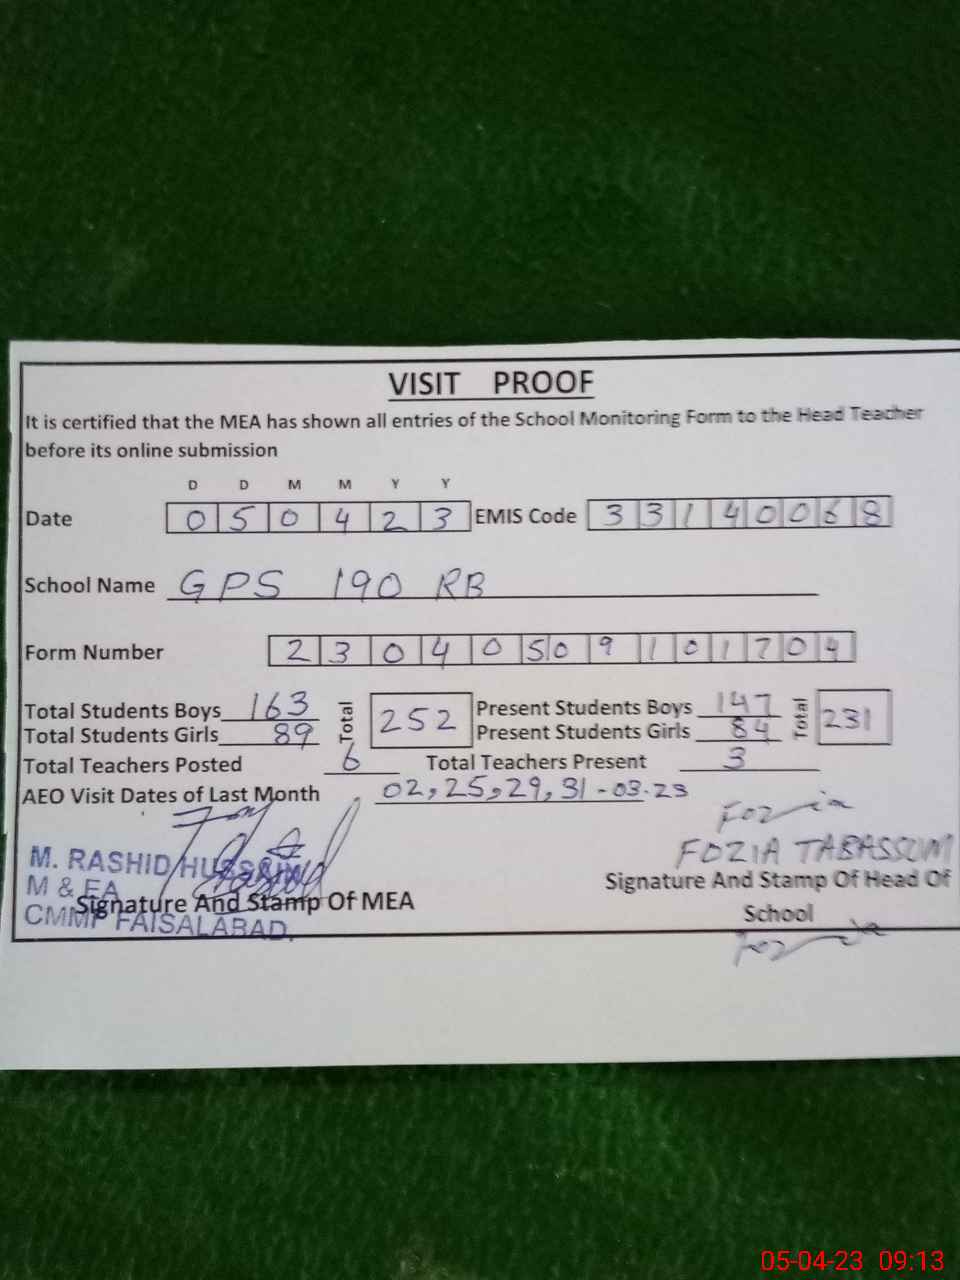 VISIT PROOF
It is certified that the MEA has shown all entries of the School Monitoring Form to the Head Teacher
before its online submission
D D M M Y Y
Date 0 5 0 4 2 3 EMIS Code 3 3 1 4 0 0 6 8
School Name GPS 190 RB
Form Number 2 3 0 4 0 5 0 9 1 0 1 7 0 4
Total Students Boys 163 Total 252 Present Students Boys 147 Total 231
Total Students Girls 89 Present Students Girls 84
Total Teachers Posted 6 Total Teachers Present 3
AEO Visit Dates of Last Month 02, 25, 29, 31-03.23
Fozia
FOZIA TABASSUM
M. RASHID HUSSAIN
M & EA
CMMF FAISALABAD.
Signature And Stamp Of MEA
Signature And Stamp Of Head Of
School
Fozia
05-04-23 09:13